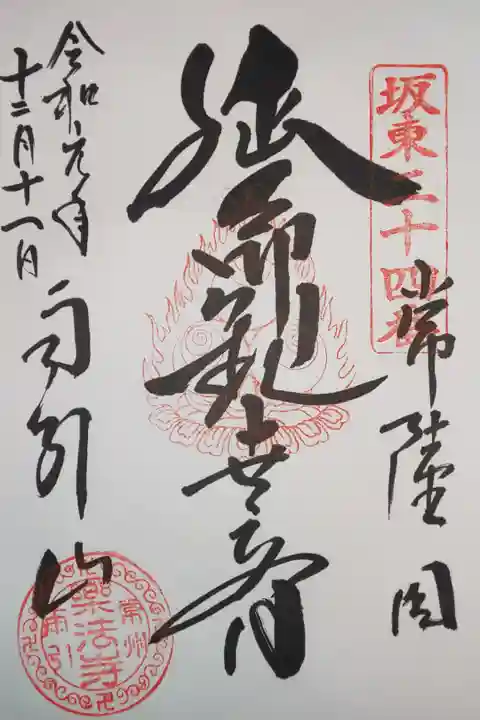 坂東二十四番
常陸国
延命観世音
雨引山
令和元年
十二月十一日
常州
楽法寺
雨引